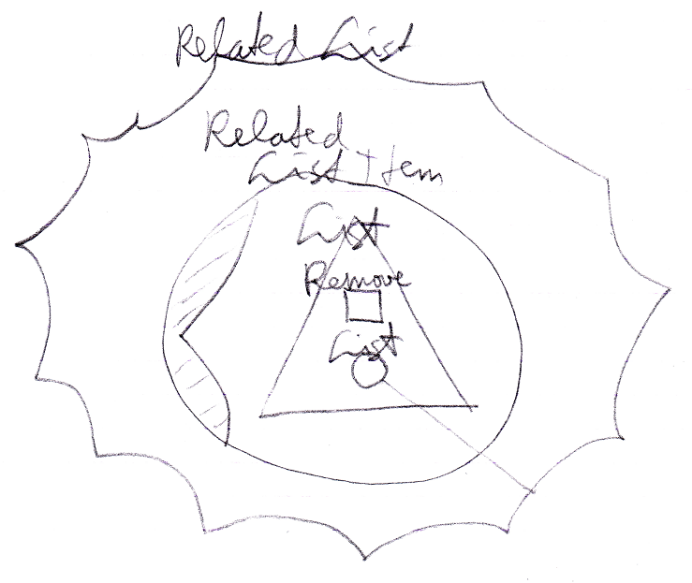 Related List
Related
List Item
List
Remove
List